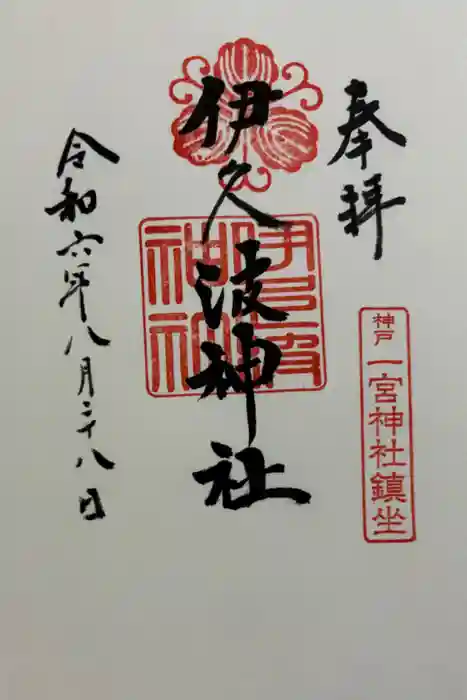 奉拝
神戸 一宮神社鎮坐
伊久波神社
伊久波神社
令和六年八月二十八日